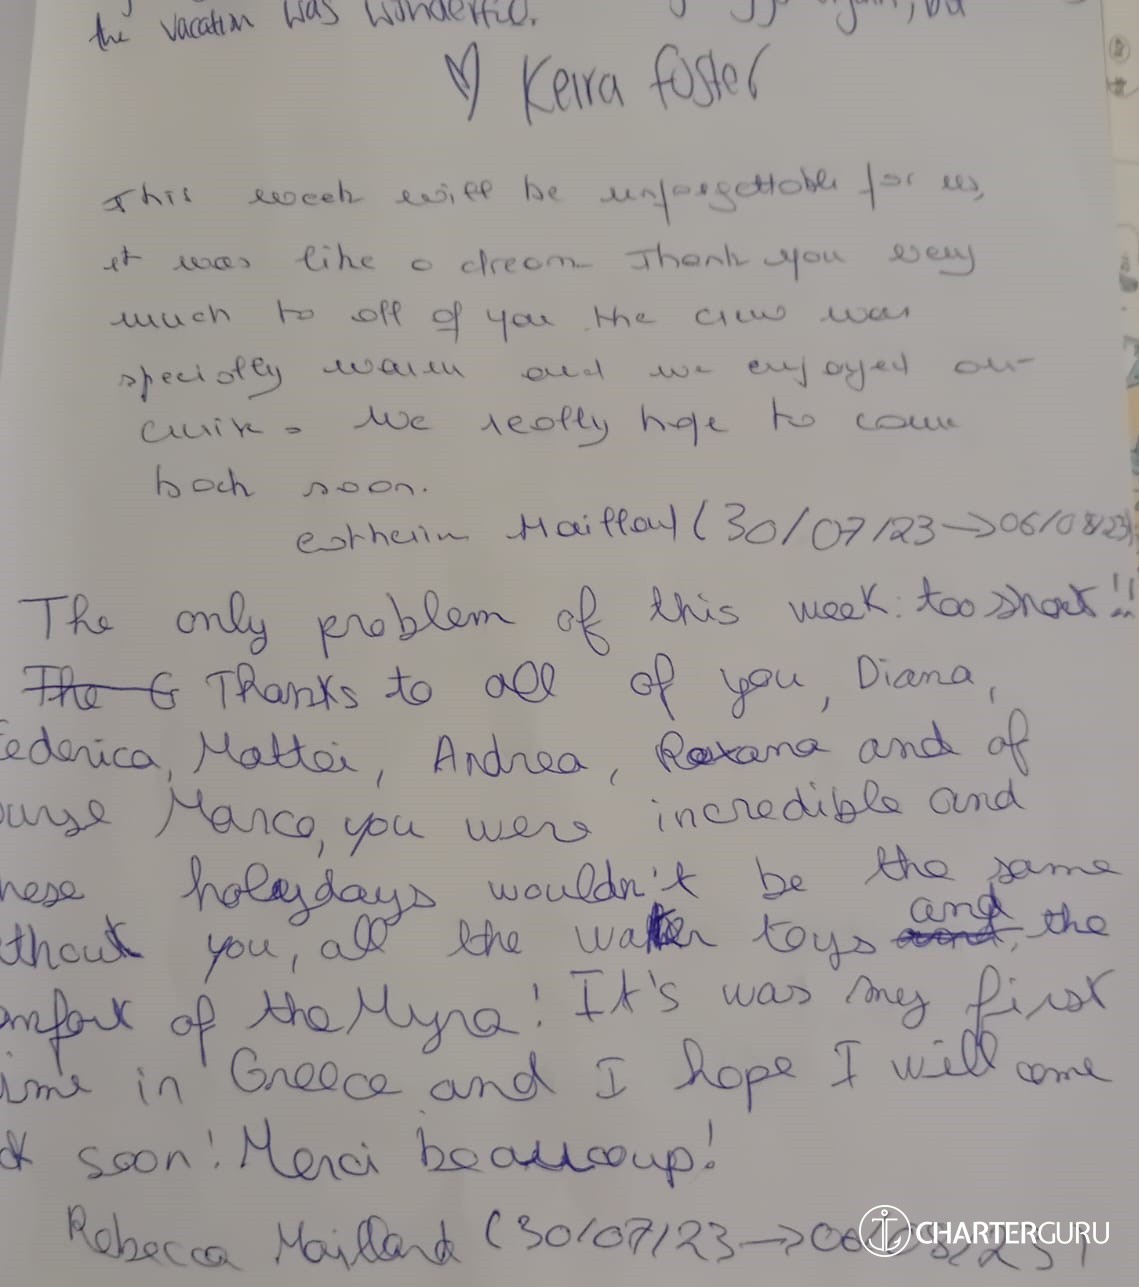 the vacation was wonderful.
♡ Keira foster
This week will be unforgettable for us,
it was like a dream Thank you very
much to all of you the crew was
specially warm and we enjoyed our
We really hope to come
back soon.
Maillard (30/07/23→06/08/23)
The only problem of this week: too short!!
The G Thanks to all of you, Diana,
ederica, Mattei, Andrea, Roxana and of
ourse Marco, you were incredible and
hese holeydays wouldn't be the same
thout you, all the water toys and, the
mfort of the Myra! It's was my first
ime in Greece and I hope I will come
ck soon! Merci beaucoup!
Rebecca Maillard (30/07/23→06/08/23)
CHARTERGURU